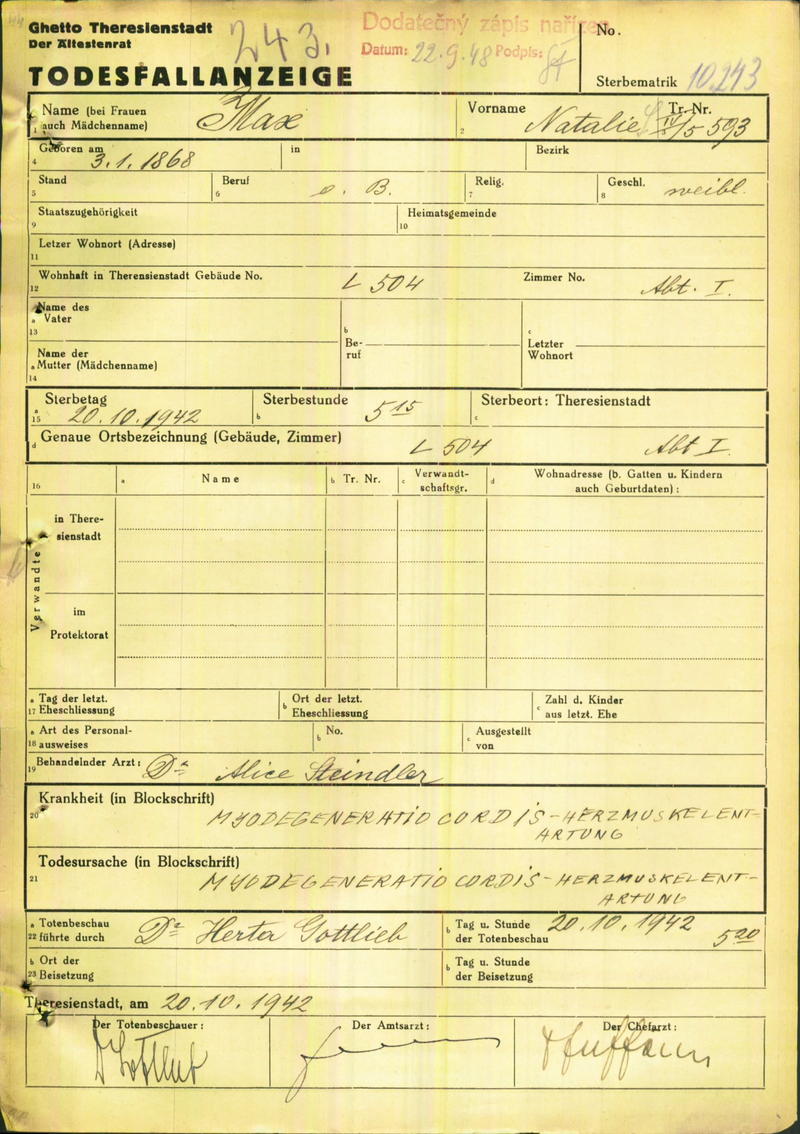 Ghetto Theresienstadt
Der Ältestenrat
243.
Dodatečný zápis nařízen
Datum: 22.9.48 Podpis:
No.
TODESFALLANZEIGE
Sterbematrik 10.243
Name (bei Frauen auch Mädchenname) Max
1
Vorname Natalie
2
Tr. Nr. IV/5 593
Geboren am 3.1.1868
4
in
Bezirk
Stand
5
Beruf o. B.
6
Relig.
7
Geschl. weibl.
8
Staatszugehörigkeit
9
Heimatsgemeinde
10
Letzer Wohnort (Adresse)
11
Wohnhaft in Therensienstadt Gebäude No. L 504
12
Zimmer No. Abt. I.
Name des
a Vater
13
b
Be-
ruf
c
Letzter
Wohnort
Name der
a Mutter (Mädchenname)
14
Sterbetag
a
15 20.10.1942
Sterbestunde 5 15
b
Sterbeort: Theresienstadt
c
d Genaue Ortsbezeichnung (Gebäude, Zimmer) L 504 Abt I.
16
a Name
b Tr. Nr.
c Verwandt-
schaftsgr.
d Wohnadresse (b. Gatten u. Kindern
auch Geburtdaten) :
Verwandte
in There-
sienstadt
im
Protektorat
a Tag der letzt.
17 Eheschliessung
b Ort der letzt.
Eheschliessung
c Zahl d. Kinder
aus letzt. Ehe
a Art des Personal-
18 ausweises
b No.
c Ausgestellt
von
Behandelnder Arzt: Dr Alice Steindler
19
Krankheit (in Blockschrift)
20 MYODEGENERATIO CORDIS - HERZMUSKELENT-
ARTUNG
Todesursache (in Blockschrift)
21 MYODEGENERATIO CORDIS - HERZMUSKELENT-
ARTUNG
a Totenbeschau
22 führte durch Dr Herta Gottlieb
b Tag u. Stunde 20.10.1942
der Totenbeschau 5 20
b Ort der
23 Beisetzung
b Tag u. Stunde
der Beisetzung
Theresienstadt, am 20.10.1942
Der Totenbeschauer:
Dr Gottlieb
Der Amtsarzt:
Der Chefarzt: